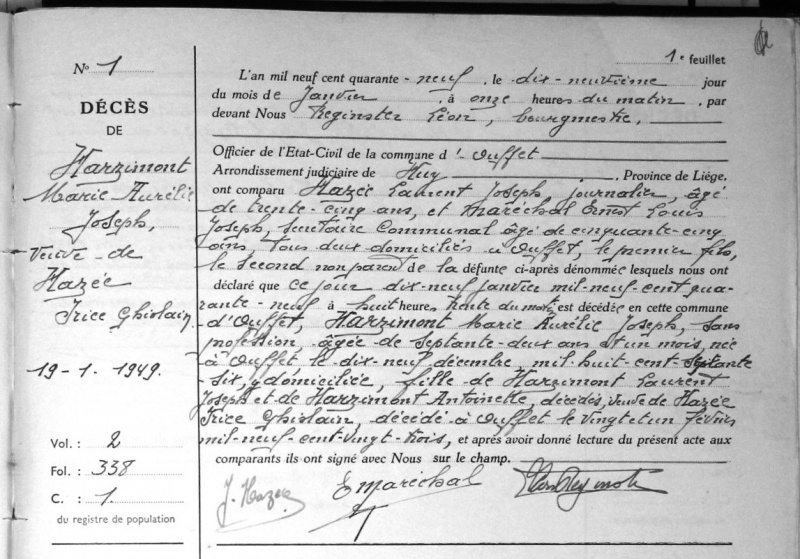 1e feuillet
No 1
DÉCÈS
DE
Harzimont
Marie Aurélie
Joseph,
veuve de
Hazée
Irice Ghislain
19-1. 1949.
Vol. : 2
Fol. : 338
C. : 1
du registre de population
L'an mil neuf cent quarante - neuf, le dix-neuvième jour
du mois de Janvier, à onze heures du matin, par
devant Nous Reginster Léon, bourgmestre,
Officier de l'Etat-Civil de la commune d'Ouffet
Arrondissement judiciaire de Huy, Province de Liége,
ont comparu Hazée Laurent Joseph journalier, âgé
de trente-cinq ans, et Maréchal Ernest Louis
Joseph, secrétaire communal âgé de cinquante-cinq
ans tous deux domiciliés à Ouffet, le premier fils,
le second non parent de la défunte ci-après dénommée lesquels nous ont
déclaré que ce jour dix-neuf janvier mil-neuf-cent qua-
rante-neuf à huit heures trente du matin est décédée en cette commune
d'Ouffet, Harzimont Marie Aurélie Joseph, sans
profession, âgée de septante-deux ans et un mois, née
à Ouffet le dix-neuf décembre mil-huit-cent-septante
-six, y domiciliée, fille de Harzimont Laurent
Joseph et de Harzimont Antoinette, décédés, veuve de Hazée
Irice Ghislain, décédé à Ouffet le vingt et un février
mil-neuf-cent-vingt-trois, et après avoir donné lecture du présent acte aux
comparants ils ont signé avec Nous sur le champ.
J. Hazée E Maréchal